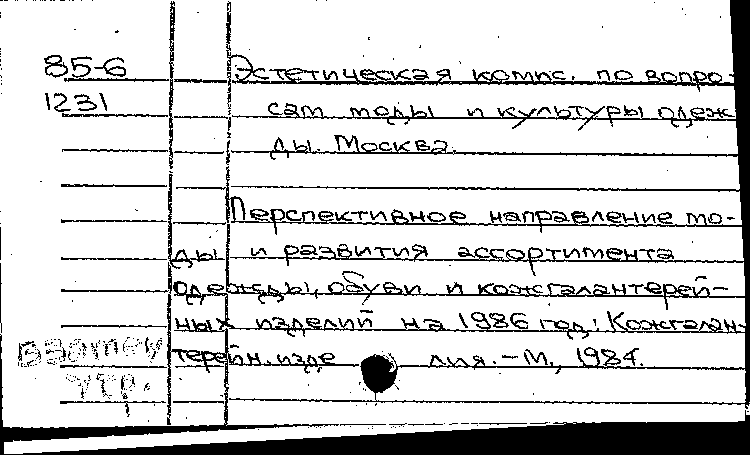 85-6 Эстетическая комис. по вопро-
1231 сам моды и культуры одеж
ды. Москва.
Перспективное направление мо-
ды и развития ассортимента
одежды, обуви и кожгалантерей-
ных изделий на 1986 год: Кожгалан-
взамен терейн. изде лия. -М., 1984.
утр.